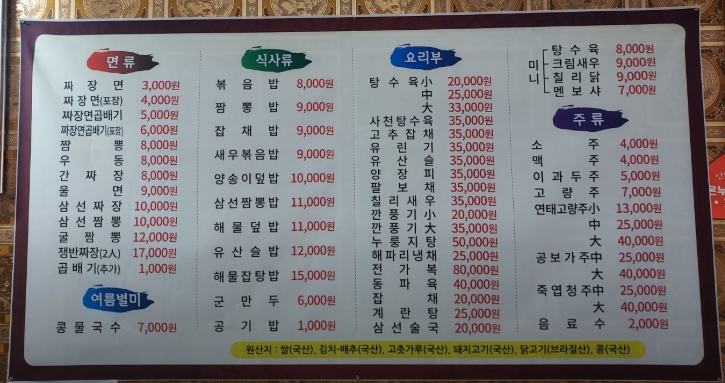 면류
짜장면 3,000원
짜장면(포장) 4,000원
짜장면곱배기 5,000원
짜장면곱배기(포장) 6,000원
짬뽕 8,000원
우동 8,000원
간짜장 8,000원
울면 9,000원
삼선짜장 10,000원
삼선짬뽕 10,000원
굴짬뽕 12,000원
쟁반짜장(2人) 17,000원
곱배기(추가) 1,000원
여름별미
콩물국수 7,000원
식사류
볶음밥 8,000원
짬뽕밥 9,000원
잡채밥 9,000원
새우볶음밥 9,000원
양송이덮밥 10,000원
삼선짬뽕밥 11,000원
해물덮밥 11,000원
유산슬밥 12,000원
해물잡탕밥 15,000원
군만두 6,000원
공기밥 1,000원
요리부
탕수육小 20,000원
中 25,000원
大 33,000원
사천탕수육 35,000원
고추잡채 35,000원
유린기 35,000원
유산슬 35,000원
양장피 35,000원
팔보채 35,000원
칠리새우 35,000원
깐풍기小 20,000원
깐풍기大 35,000원
누룽지탕 50,000원
해파리냉채 25,000원
전가복 80,000원
동파육 40,000원
잡채 20,000원
계란탕 25,000원
삼선술국 20,000원
미니
탕수육 8,000원
크림새우 9,000원
칠리닭 9,000원
멘보샤 7,000원
주류
소주 4,000원
맥주 4,000원
이과두주 5,000원
고량주 7,000원
연태고량주小 13,000원
中 25,000원
大 40,000원
공보가주中 25,000원
大 40,000원
죽엽청주中 25,000원
大 40,000원
음료수 2,000원
원산지 : 쌀(국산), 김치-배추(국산), 고춧가루(국산), 돼지고기(국산), 닭고기(브라질산), 콩(국산)